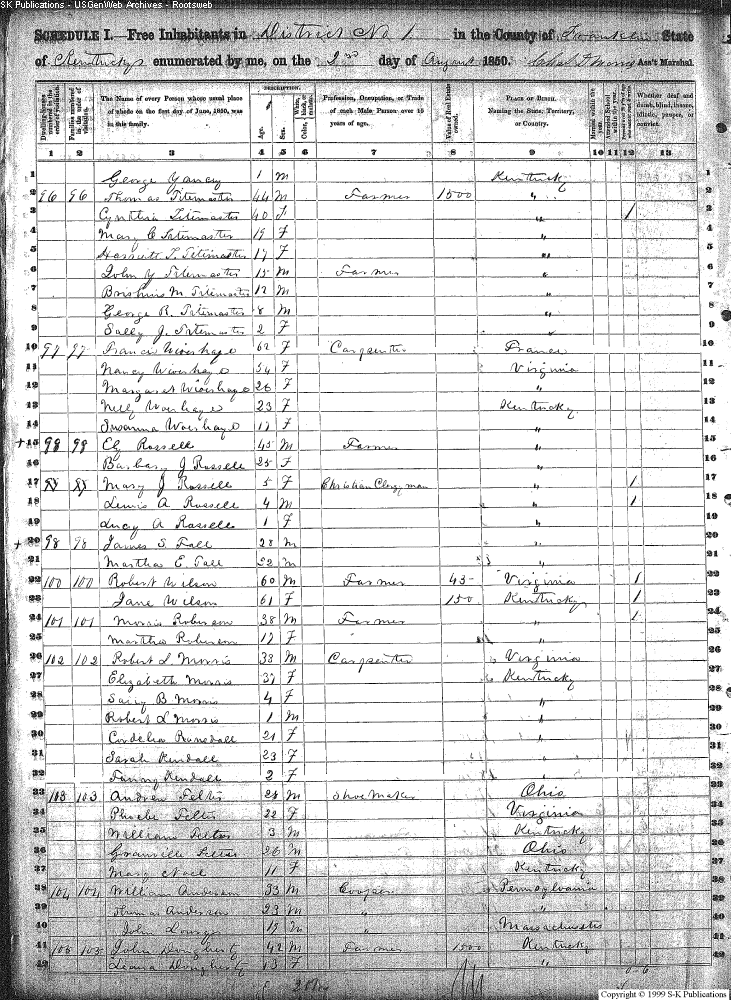 SK Publications - USGenWeb Archives - Rootsweb
SCHEDULE I.—Free Inhabitants in District No 1 in the County of Franklin State
of Kentucky enumerated by me, on the 2nd day of August 1850. Ass't Marshal.
Dwelling-houses numbered in the order of visitation.
Families numbered in the order of visitation.
The Name of every Person whose usual place of abode on the first day of June, 1850, was in this family.
DESCRIPTION.
Age.
Sex.
Color, White, black, or mulatto.
Profession, Occupation, or Trade of each Male Person over 15 years of age.
Value of Real Estate owned.
PLACE OF BIRTH. Naming the State, Territory, or Country.
Married within the year.
Attended School within the year.
Whether deaf and dumb, blind, insane, idiotic, pauper, or convict.
1 2 3 4 5 6 7 8 9 10 11 12 13
1 George Yancy 1 M Kentucky 1
2 96 96 Thomas Titemaster 44 M Farmer 1500 " 2
3 Cynthia Titemaster 40 F " 1 3
4 Mary C Titemaster 19 F " 4
5 Harriett T. Titemaster 17 F " 5
6 John Y Titemaster 15 M Farmer " 6
7 M Titemaster 12 M " 7
8 George R. Titemaster 8 M " 8
9 Sally J. Titemaster 2 F " 9
10 97 97 Francis 62 F Carpenter France 10
11 Nancy 54 F Virginia 11
12 Margaret 26 F " 12
13 Nelly 23 F Kentucky 13
14 Susanna 17 F " 14
15 98 98 Ely Russell 45 M Farmer " 15
16 Barbary J Russell 25 F " 16
17 Mary J Russell 5 F Christian Clergyman " 1 17
18 Lewis A Russell 4 M " 1 18
19 Lucy A Russell 1 F " 19
20 98 98 James S Fall 28 M " 20
21 Martha E Fall 22 M " 21
22 100 100 Robert Wilson 60 M Farmer 45- Virginia 1 22
23 Jane Wilson 61 F 150 Kentucky 1 23
24 101 101 Morris Roberson 38 M Farmer " 1 24
25 Martha Roberson 17 F " 25
26 102 102 Robert L Morris 38 M Carpenter Virginia 26
27 Elizabeth Morris 37 F Kentucky 27
28 B Morris 4 F " 28
29 Robert L Morris 1 M " 29
30 Cordelia Ransdall 21 F " 30
31 Sarah Kendall 23 F " 31
32 Kendall 2 F " 32
33 103 103 Andrew Felter M Shoe Maker Ohio 33
34 Phoebe Felter 22 F Virginia 34
35 William Felter 3 M Kentucky 35
36 Granville Felter 26 M Ohio 36
37 Mary 11 F Kentucky 37
104 104 William Anderson 33 M Cooper Pennsylvania
Thomas Anderson 23 M " "
John 19 M " Massachusetts
41 105 105 John Dougherty 42 M Farmer 1500 Kentucky 41
42 Dougherty 13 F " 42
Copyright © 1999 S-K Publications